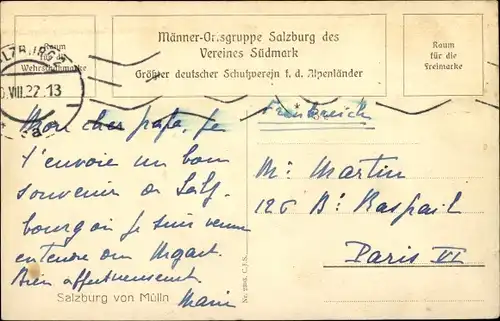 Männer-Ortsgruppe Salzburg des
Vereines Südmark
Größter deutscher Schutzverein f. d. Alpenländer
Raum
für die
Wehrschatzmarke
Raum
für die
Freimarke
SALZBURG 2
.VIII.22.13
a
Mon cher papa, je
t'envoie un bon
souvenir de Salz
bourg où je suis venu
entendre du Mozart.
Bien affectueusement
Salzburg von Mülln
Nr. C.J.S.
Frankreich
Mr Martin
126 Bd Raspail
Paris VI